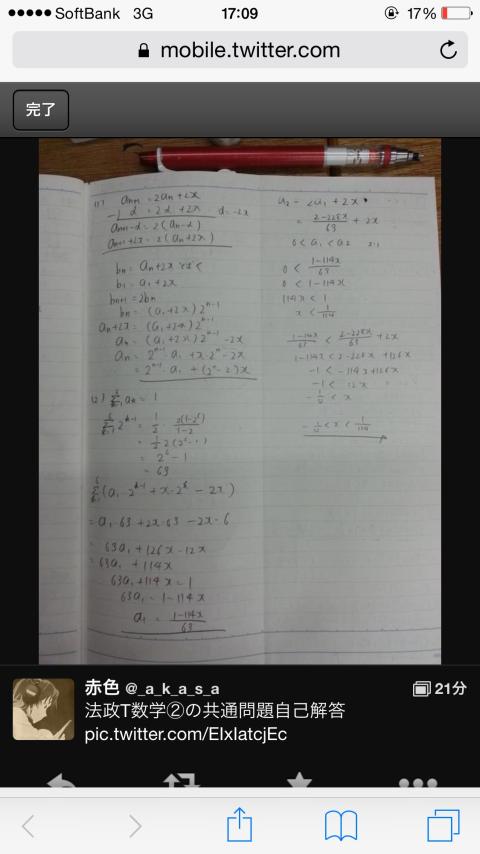 SoftBank 3G 17:09 17%
mobile.twitter.com
完了
(1) an+1 = 2an+2x
-) α = 2α+2x α=-2x
an+1-α = 2(an-α)
an+1+2x = 2(an+2x)
bn = an+2x とおく
b1 = a1+2x
bn+1 = 2bn
bn = (a1+2x)2^n-1
an+2x = (a1+2x)2^n-1
an = (a1+2x)2^n-1 -2x
an = 2^n-1・a1+x・2^n-2x
= 2^n-1・a1+(2^n-2)x
(2) 6Σk=1 ak = 1
6Σk=1 2^k-1 = 1/2・2(1-2^6)/1-2
= 1/2 2(2^6-1)
= 2^6-1
= 63
6Σk=1(a1・2^k-1+x・2^k-2x)
= a1・63+2x・63-2x・6
= 63a1+126x-12x
= 63a1+114x
63a1+114x=1
63a1=1-114x
a1 = 1-114x/63
a2 = 2a1+2x
= 2-228x/63+2x
0<a1<a2 より
0 < 1-114x/63
0 < 1-114x
114x < 1
x < 1/114
1-114x/63 < 2-228x/63+2x
1-114x < 2-228x+126x
-1 < -114x+126x
-1 < 12x
-1/12 < x
-1/12 < x < 1/114
赤色 @_a_k_a_s_a 21分
法政T数学②の共通問題自己解答
pic.twitter.com/ElxIatcjEc